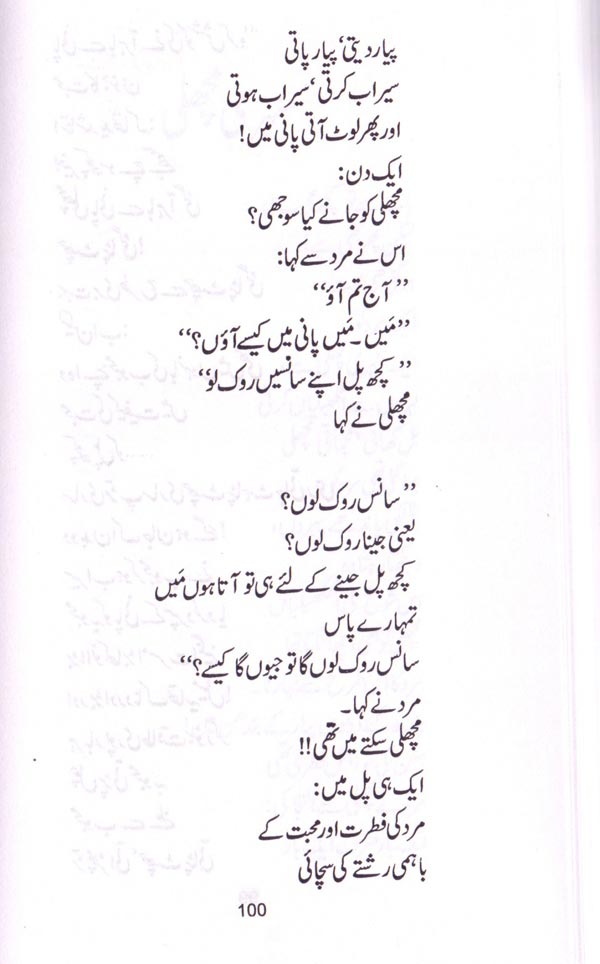 پیار دیتی، پیار پاتی
سیراب کرتی، سیراب ہوتی
اور پھر لوٹ آتی پانی میں!
ایک دن:
مچھلی کو جانے کیا سوجھی؟
اس نے مرد سے کہا:
”آج تم آؤ“
”مَیں۔ مَیں پانی میں کیسے آؤں؟“
”کچھ پل اپنے سانسیں روک لو“
مچھلی نے کہا
”سانس روک لوں؟
یعنی جینا روک لوں؟
کچھ پل جینے کے لئے ہی تو آتا ہوں مَیں
تمہارے پاس
سانس روک لوں گا تو جیوں گا کیسے؟“
مرد نے کہا۔
مچھلی سکتے میں تھی!!
ایک ہی پل میں:
مرد کی فطرت اور محبت کے
باہمی رشتے کی سچائی
100